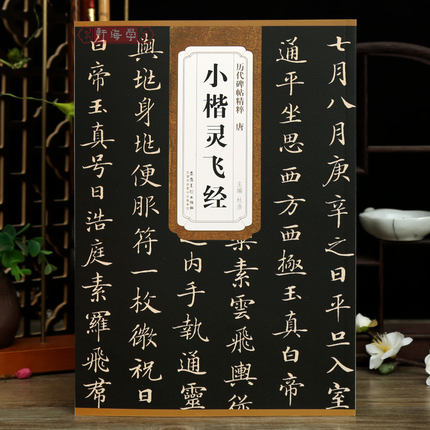 軒海学
历代碑帖精粹 唐
小楷灵飞经
主编 杜浩
七月八月庚辛之日平旦入室
通平坐思西方西極玉真白帝
乘素雲飛輿從
之内手執通靈
輿地身地便服符一枚微祝日
白帝玉真号日浩庭素羅飛帬